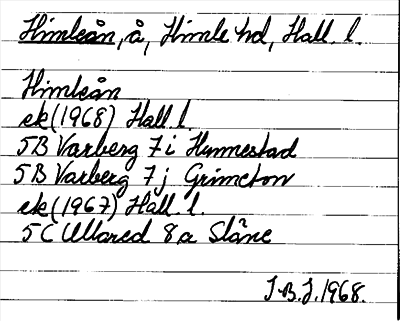 Himleån, å, Himle hd, Hall. l.
Himleån
ek(1968) Hall l.
5B Varberg 7i Hunnestad
5B Varberg 7j Grimeton
ek(1967) Hall. l.
5C Ullared 8a Släne
I.B.J. 1968.